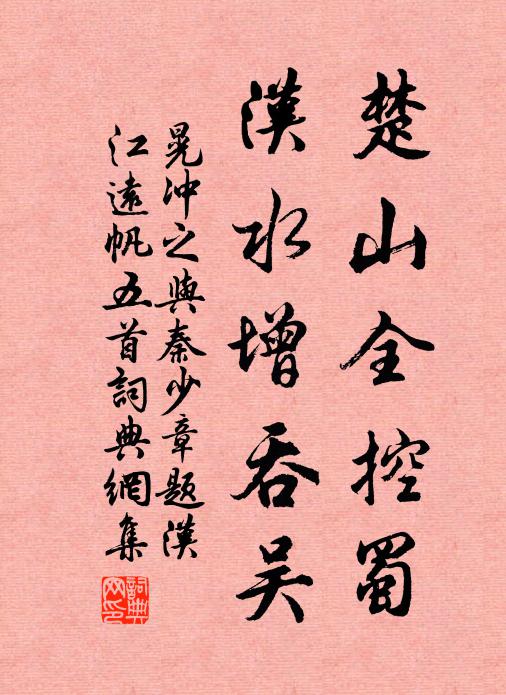 楚山全控蜀
漢水增吞吴
晁冲之與秦少章題漢
江遠帆五首詞典網集
詞典